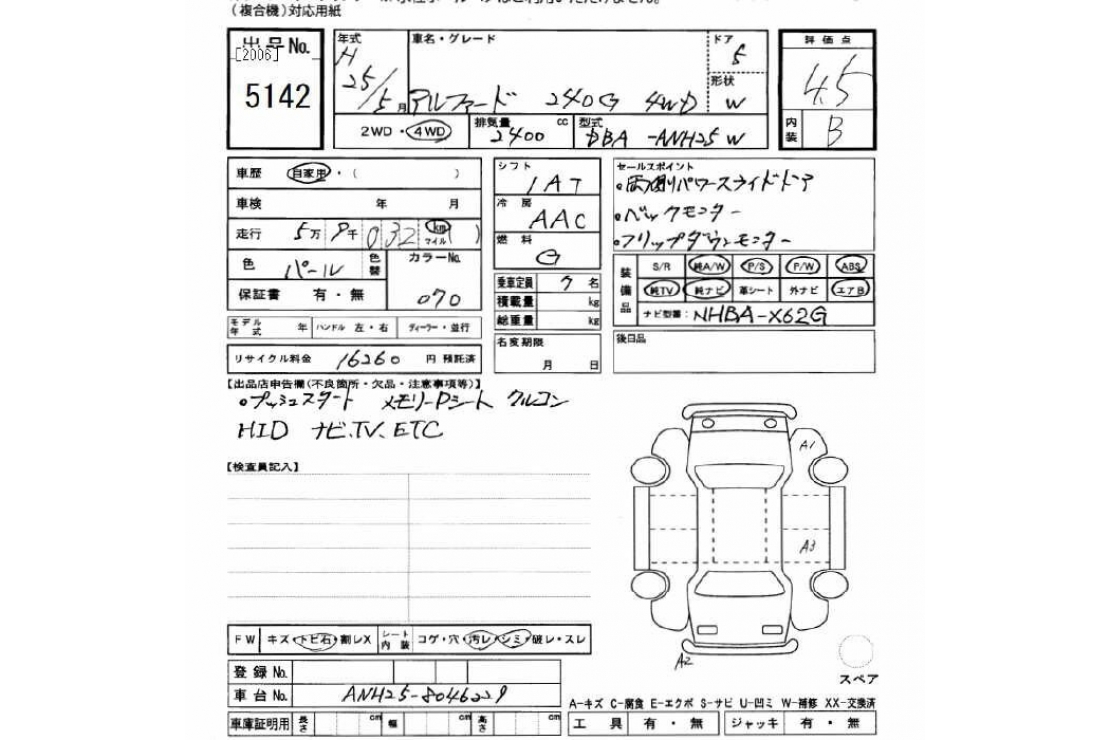 （複合機）対応用紙
出品No.
[2006]
5142
年式 H 25/5月
車名・グレード アルファード 240G 4WD
ドア 5
形状 W
評価点 4.5
内装 B
2WD・4WD
排気量 2400 cc
型式 DBA -ANH25 W
車歴 自家用・（ ）
車検 年 月
走行 5万 8千 032 km マイル( )
色 パール 色替
カラーNo. 070
保証書 有・無
モデル年式 年 ハンドル 左・右 ディーラー・並行
リサイクル料金 16260 円 預託済
シフト 1AT
冷房 AAC
燃料 G
乗車定員 7 名
積載量 kg
総重量 kg
名変期限 月 日
セールスポイント
・両側パワースライドドア
・バックモニター
・フリップダウンモニター
装備品 S/R 純A/W P/S P/W ABS
純TV 純ナビ 革シート 外ナビ エアB
ナビ型番：NHBA-X62G
後日品
【出品店申告欄（不良箇所・欠品・注意事項等）】
・プッシュスタート メモリーDシート クルコン
HID ナビ、TV、ETC
【検査員記入】
A1
A3
A2
スペア
FW キズ・トビ石・割レX シート内装 コゲ・穴・汚レ・シミ・破レ・スレ
登録No.
車台No. ANH25-8046229
A－キズ C－腐食 E－エクボ S－サビ U－凹ミ W－補修 XX－交換済
車庫証明用 長さ cm 幅 cm 高さ cm
工具 有・無 ジャッキ 有・無